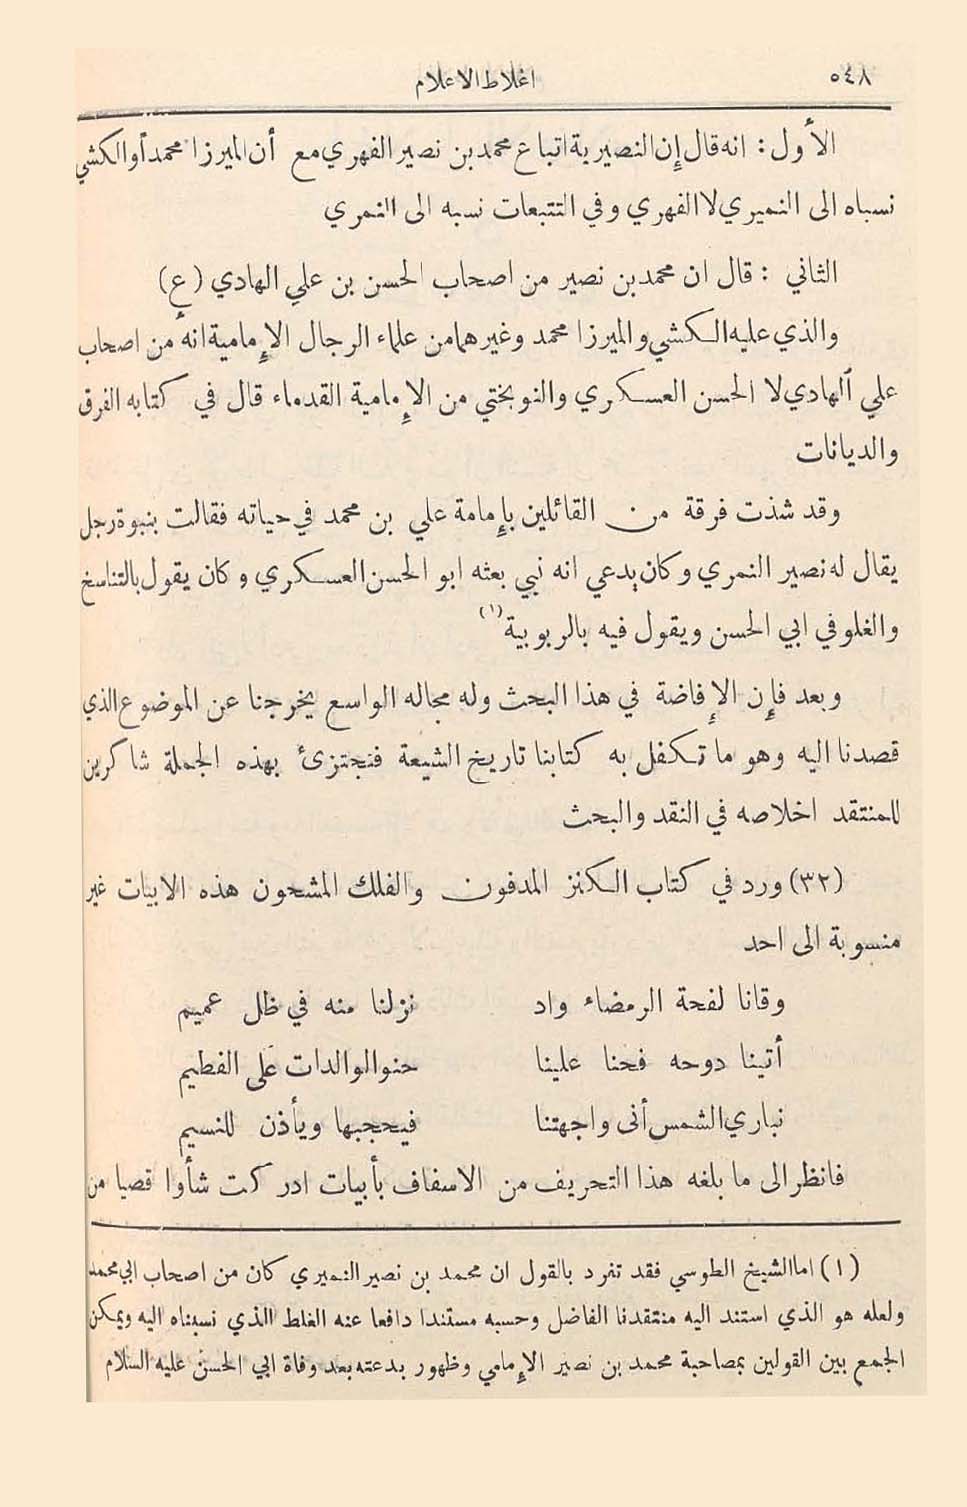 ٥٤٨
اغلاط الاعلام
الأول : انه قال إن النصيرية اتباع محمد بن نصير الفهري مع أن الميرزا محمداً والكشي
نسباه الى النميري لا الفهري وفي التتبعات نسبه الى النمري
الثاني : قال ان محمد بن نصير من اصحاب الحسن بن علي الهادي (ع)
والذي عليه الكشي والميرزا محمد وغيرهما من علماء الرجال الإمامية انه من اصحاب
علي الهادي لا الحسن العسكري والنوبختي من الإمامية القدماء قال في كتابه الفرق
والديانات
وقد شذت فرقة من القائلين بإمامة علي بن محمد في حياته فقالت بنبوة رجل
يقال له نصير النمري وكان يدعي انه نبي بعثه ابو الحسن العسكري وكان يقول بالتناسخ
والغلو في ابي الحسن ويقول فيه بالربوبية (١)
وبعد فإن الإفاضة في هذا البحث وله مجاله الواسع يخرجنا عن الموضوع الذي
قصدنا اليه وهو ما تكفل به كتابنا تاريخ الشيعة فنجتزئ بهذه الجملة شاكرين
للمنتقد اخلاصه في النقد والبحث
(٣٢) ورد في كتاب الكنز المدفون والفلك المشحون هذه الابيات غير
منسوبة الى احد
وقانا لفحة الرمضاء واد نزلنا منه في ظل عميم
أتينا دوحه فحنا علينا حنو الوالدات عَلى الفطيم
نباري الشمس أنى واجهتنا فيحجبها ويأذن للنسيم
فانظر الى ما بلغه هذا التحريف من الاسفاف بأبيات ادركت شأوا قصيا من
(١) اما الشيخ الطوسي فقد تفرد بالقول ان محمد بن نصير النميري كان من اصحاب ابي محمد
ولعله هو الذي استند اليه منتقدنا الفاضل وحسبه مستندا دافعا عنه الغلط الذي نسبناه اليه ويمكن
الجمع بين القولين بمصاحبة محمد بن نصير الإمامي وظهور بدعته بعد وفاة ابي الحسن عليه السلام